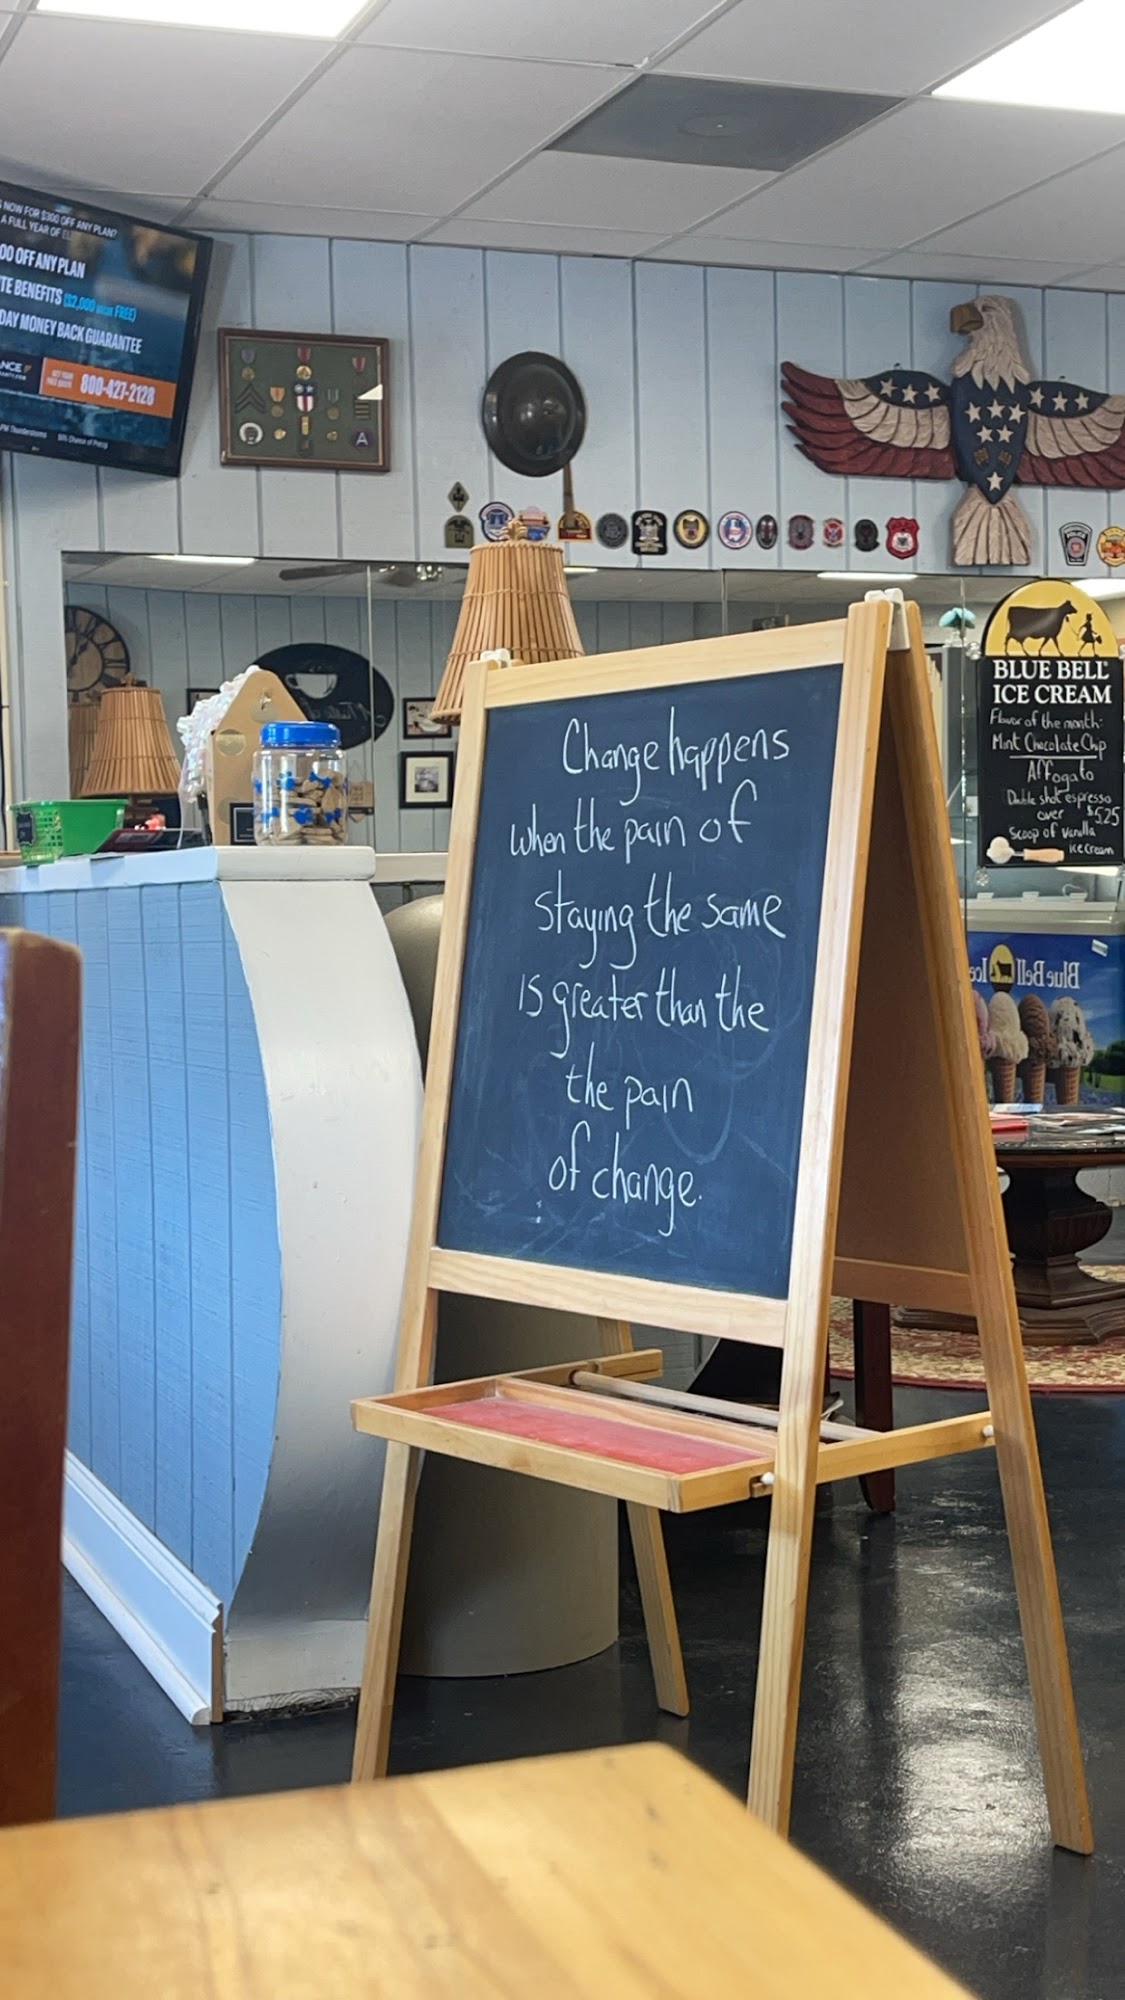 NOW FOR $300 OFF ANY PLAN?
A FULL YEAR OF
00 OFF ANY PLAN
TE BENEFITS ($2,000 VALUE FREE)
DAY MONEY BACK GUARANTEE
NCE
GET YOUR
FREE QUOTE
800-427-2128
PM Thunderstorms
50% Chance of Precip
A
BLUE BELL
ICE CREAM
Flavor of the month:
Mint Chocolate Chip
Affogato
Double shot espresso
over $5.25
Scoop of vanilla
ice cream
Change happens
when the pain of
staying the same
is greater than the
the pain
of change.
Blue Bell Ice